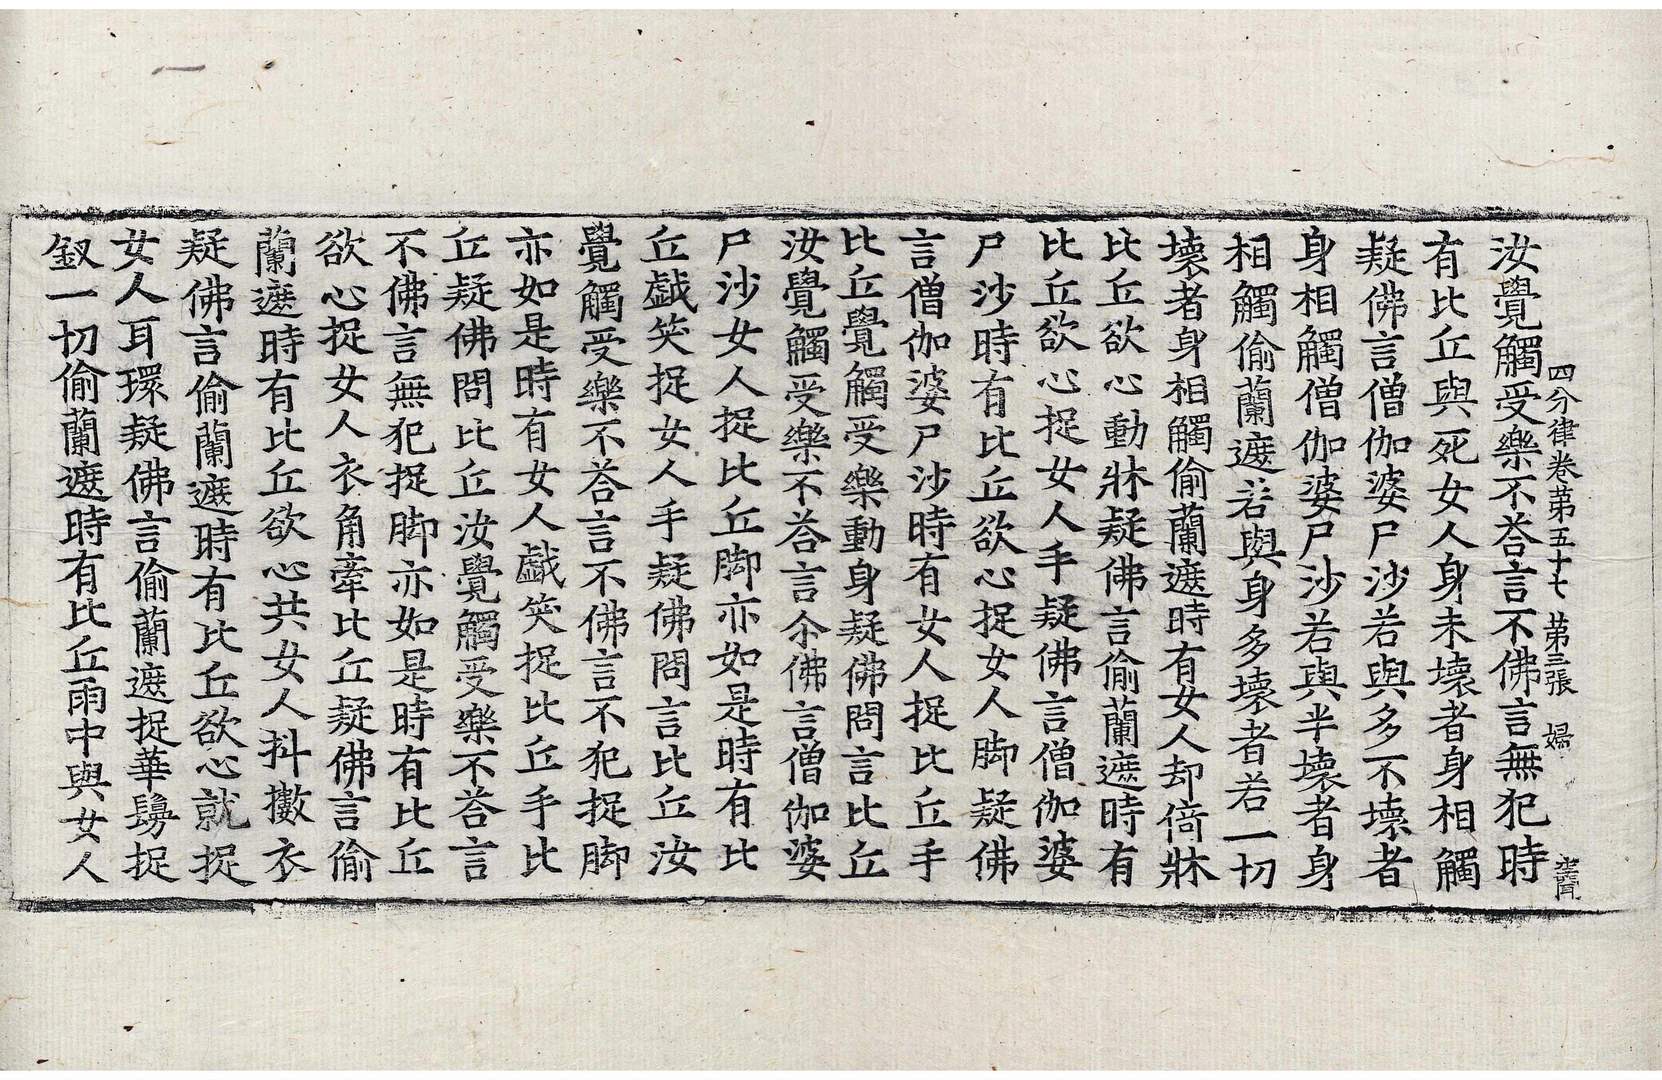 四分律卷第五十七 第三張 婦
汝覺觸受樂不荅言不佛言無犯時
有比丘與死女人身未壞者身相觸
疑佛言僧伽婆尸沙若與多不壞者
身相觸僧伽婆尸沙若與半壞者身
相觸偷蘭遮若與身多壞者若一切
壞者身相觸偷蘭遮時有女人却倚牀
比丘欲心動牀疑佛言偷蘭遮時有
比丘欲心捉女人手疑佛言僧伽婆
尸沙時有比丘欲心捉女人脚疑佛
言僧伽婆尸沙時有女人捉比丘手
比丘覺觸受樂動身疑佛問言比丘
汝覺觸受樂不荅言尒佛言僧伽婆
尸沙女人捉比丘脚亦如是時有比
丘戱笑捉女人手疑佛問言比丘汝
覺觸受樂不荅言不佛言不犯捉脚
亦如是時有女人戱笑捉比丘手比
丘疑佛問比丘汝覺觸受樂不荅言
不佛言無犯捉脚亦如是時有比丘
欲心捉女人衣角牽比丘疑佛言偷
蘭遮時有比丘欲心共女人抖擻衣
疑佛言偷蘭遮時有比丘欲心就捉
女人耳環疑佛言偷蘭遮捉華鬘捉
釵一切偷蘭遮時有比丘雨中與女人